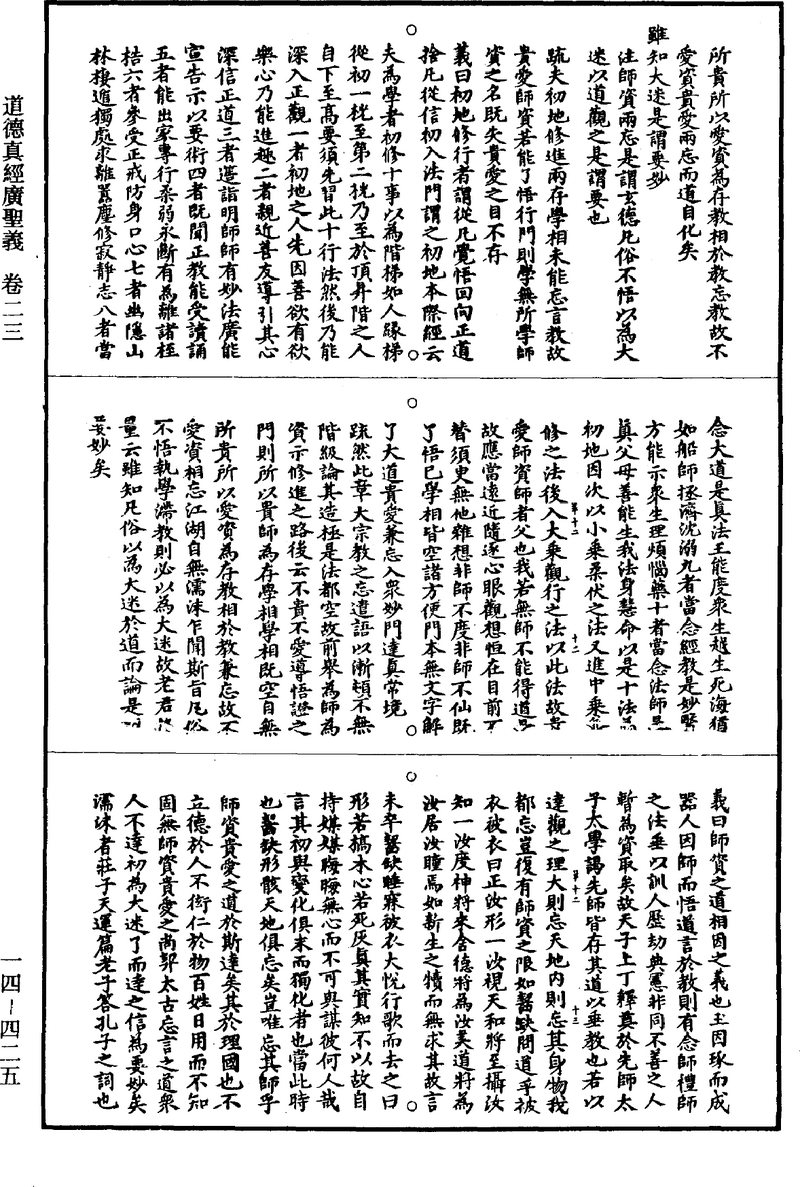 道德真經廣聖義　卷二三
一四—四二五
所貴所以愛資為存教相於教忘教故不
愛資貴愛兩忘而道自化矣
雖知大迷是謂要妙
注師資兩忘是謂玄德凡俗不悟以為大
迷以道觀之是謂要也
疏夫初地修進兩存學相未能忘言教故
貴愛師資若能了悟行門則學無所學師
資之名既失貴愛之目不存
義曰初地修行者謂從凡覺悟回向正道
捨凡從信初入法門謂之初地本際經云
夫為學者初修十事以為階梯如人緣梯
從初一桄至第二桄乃至於頂昇階之人
自下至高要須先習此十行法然後乃能
深入正觀一者初地之人先因善欲有欲
樂心乃能進趣二者親近善友導引其心
深信正道三者遵詣明師師有妙法廣能
宣告示以要術四者既聞正教能受讀誦
五者能出家專行柔弱永斷有為離諸桎
梏六者奉受正戒防身口心七者幽隱山
林棲遁獨處求離囂塵修寂靜志八者當
念大道是真法王能度眾生越生死海猶
如船師拯濟沈溺九者當念經教是妙醫
方能示眾生理煩惱藥十者當念法師是
真父母善能生我法身慧命以是十法為
初地因次以小乘柔伏之法又進中乘
修之法後入大乘觀行之法以此法故貴
愛師資師者父也我若無師不能得道是
故應當遠近隨逐心眼觀想恒在目前不
替須臾無他雜想非師不度非師不仙既
了悟已學相皆空諸方便門本無文字解
了大道貴愛兼忘入眾妙門達真常境
疏然此章大宗教之忘遣語以漸頓不無
階級論其造極是法都空故前舉為師為
資示修進之路後云不貴不愛導悟證之
門則所以貴師為存學相學相既空自無
所貴所以愛資為存教相於教兼忘故不
愛資相忘江湖自無濡沫乍聞斯旨凡俗
不悟執學滯教則必以為大迷故老君
量云雖知凡俗以為大迷於道而論是
要妙矣
義曰師資之道相因之義也玉因琢而成
器人因師而悟道言於教則有念師禮師
之法垂以訓人歷劫典憲非同不善之人
暫為資取矣故天子上丁釋奠於先師太
子太學謁先師皆存其道以垂教也若以
達觀之理大則忘天地內則忘其身物我
都忘豈復有師資之限如齧缺問道乎被
衣被衣曰正汝形一汝視天和將至攝汝
知一汝度神將來舍德將為汝美道將為
汝居汝瞳焉如新生之犢而無求其故言
未卒齧缺睡寐被衣大悅行歌而去之曰
形若槁木心若死灰真其實知不以故自
持媒媒晦晦無心而不可與謀彼何人哉
言其初與變化俱未而獨化者也當此時
也齧缺形骸天地俱忘矣豈唯忘其師乎
師資貴愛之道於斯達矣其於理國也不
立德於人不衒仁於物百姓日用而不知
固無師資貴愛之尚郭太古忘言之道眾
人不達初為大迷了而達之信為要妙矣
濡沫者莊子天運篇老子答孔子之詞也